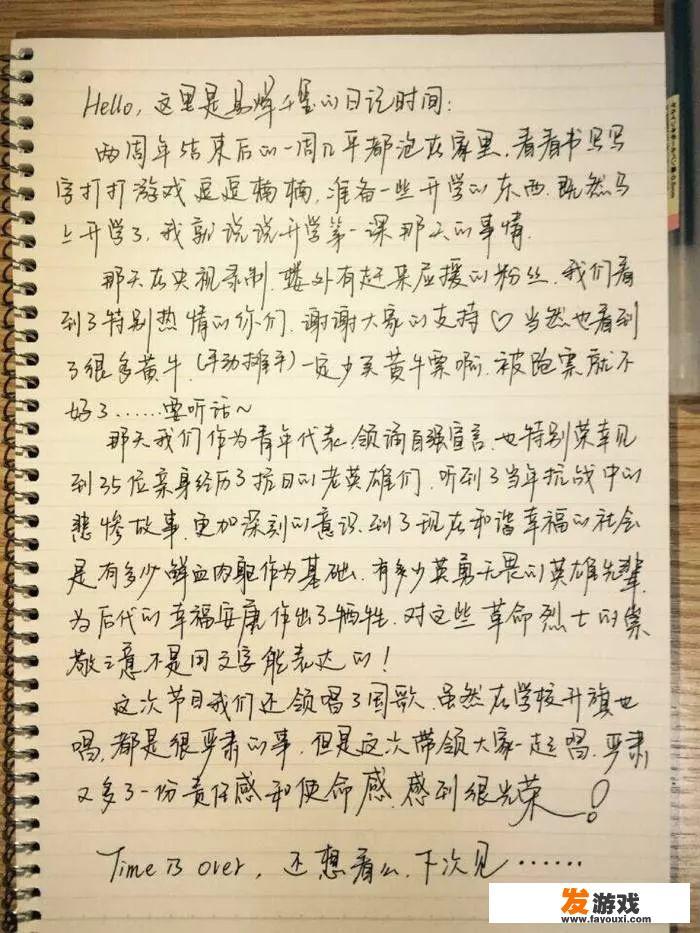 Hello, 这里是易烊千玺的日记时间:
两周年结束后的一周几乎都泡在家里, 看看书写写
字打打游戏逗逗楠楠, 准备一些开学的东西. 既然马
上开学了, 我就说说开学第一课那天的事情.
那天在央视录制, 楼外有赶来应援的粉丝, 我们看
到了特别热情的你们, 谢谢大家的支持♡ 当然也看到
了很多黄牛. (手动摊手) 一定少买黄牛票啊. 被跑票就不
好了……要听话~
那天我们作为青年代表, 领诵自强宣言, 也特别荣幸见
到35位亲身经历了抗日的老英雄们, 听到了当年抗战中的
悲惨故事, 更加深刻的意识到了现在和谐幸福的社会
是有多少鲜血肉躯作为基础, 有多少英勇无畏的英雄先辈
为后代的幸福安康作出了牺牲. 对这些革命烈士的崇
敬之意不是用文字能表达的!
这次节目我们还领唱了国歌, 虽然在学校升旗也
唱, 都是很严肃的事, 但是这次带领大家一起唱, 严肃
又多了一份责任感和使命感, 感到很光荣!
Time is over, 还想看么, 下次见……
发游戏
www.fayouxi.com